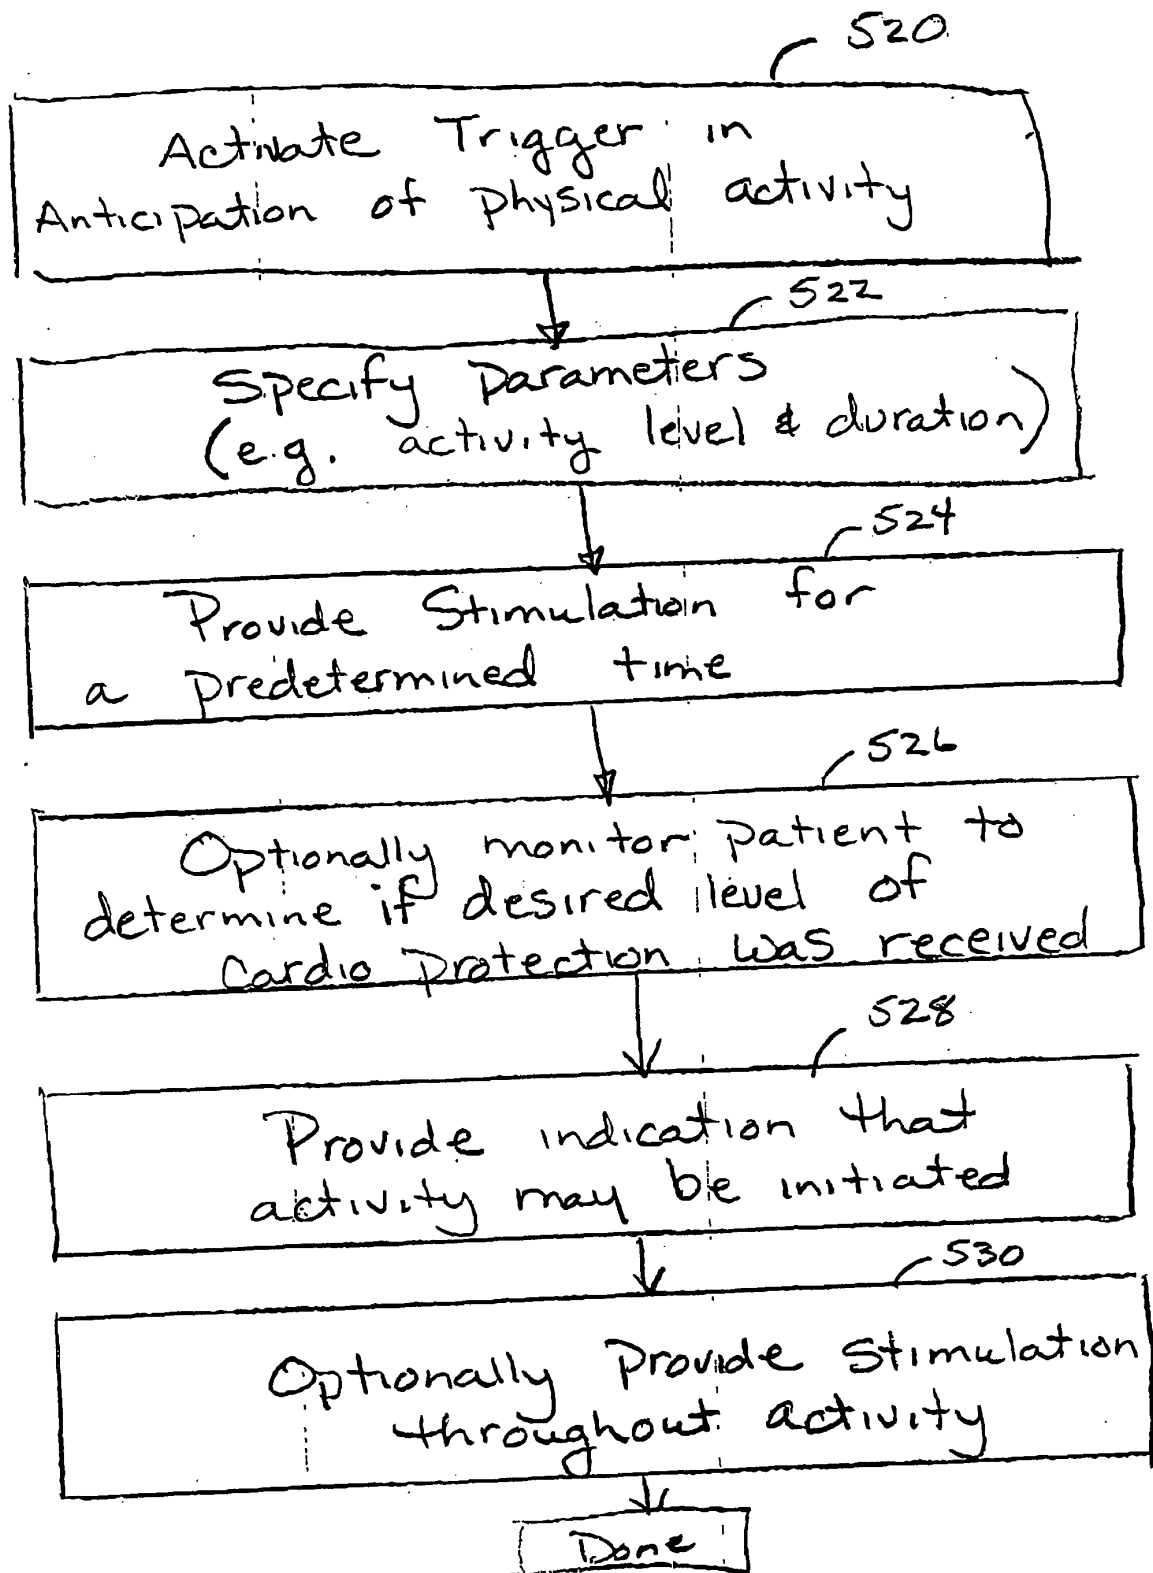 520
Activate Trigger in
Anticipation of physical activity
522
Specify Parameters
(e.g. activity level & duration)
524
Provide Stimulation for
a predetermined time
526
Optionally monitor patient to
determine if desired level of
Cardio protection was received
528
Provide indication that
activity may be initiated
530
Optionally Provide Stimulation
throughout activity
Done